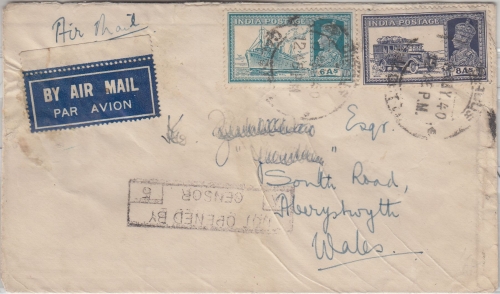 Air Mail
BY AIR MAIL
PAR AVION
INDIA POSTAGE
6As
INDIA POSTAGE
8As
Esqr.
South Road,
Aberystwyth
Wales.
NOT OPENED BY
CENSOR
MAY 40
P.M.